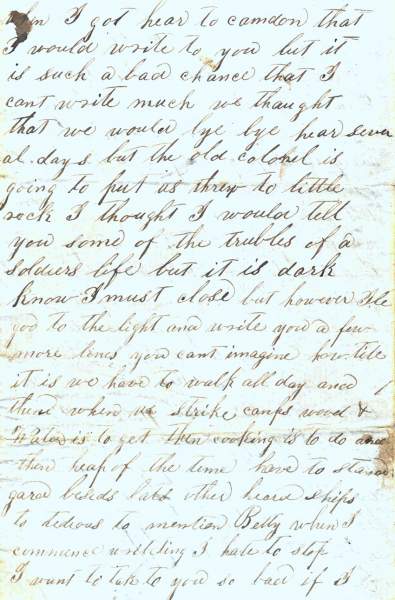 when I got hear to camden that
I would write to you but it
is such a bad chance that I
cant write much we thought
that we would lye bye hear sever
al days but the old colonel is
going to put us threw to little
rock I thought I would tell
you some of the trubles of a
soldiers life but it is dark
know I must close but however Ile
goo to the light and write you a few
more lines you cant imagine how tite
it is we have to walk all day and
then when we strike camps wood &
Water is to get then cooking is to do and
then heap of the time have to stand
gard besids lats other heard ships
to tedious to mention Betty when I
commence writting I hate to stop
I want to talk to you so bad if I